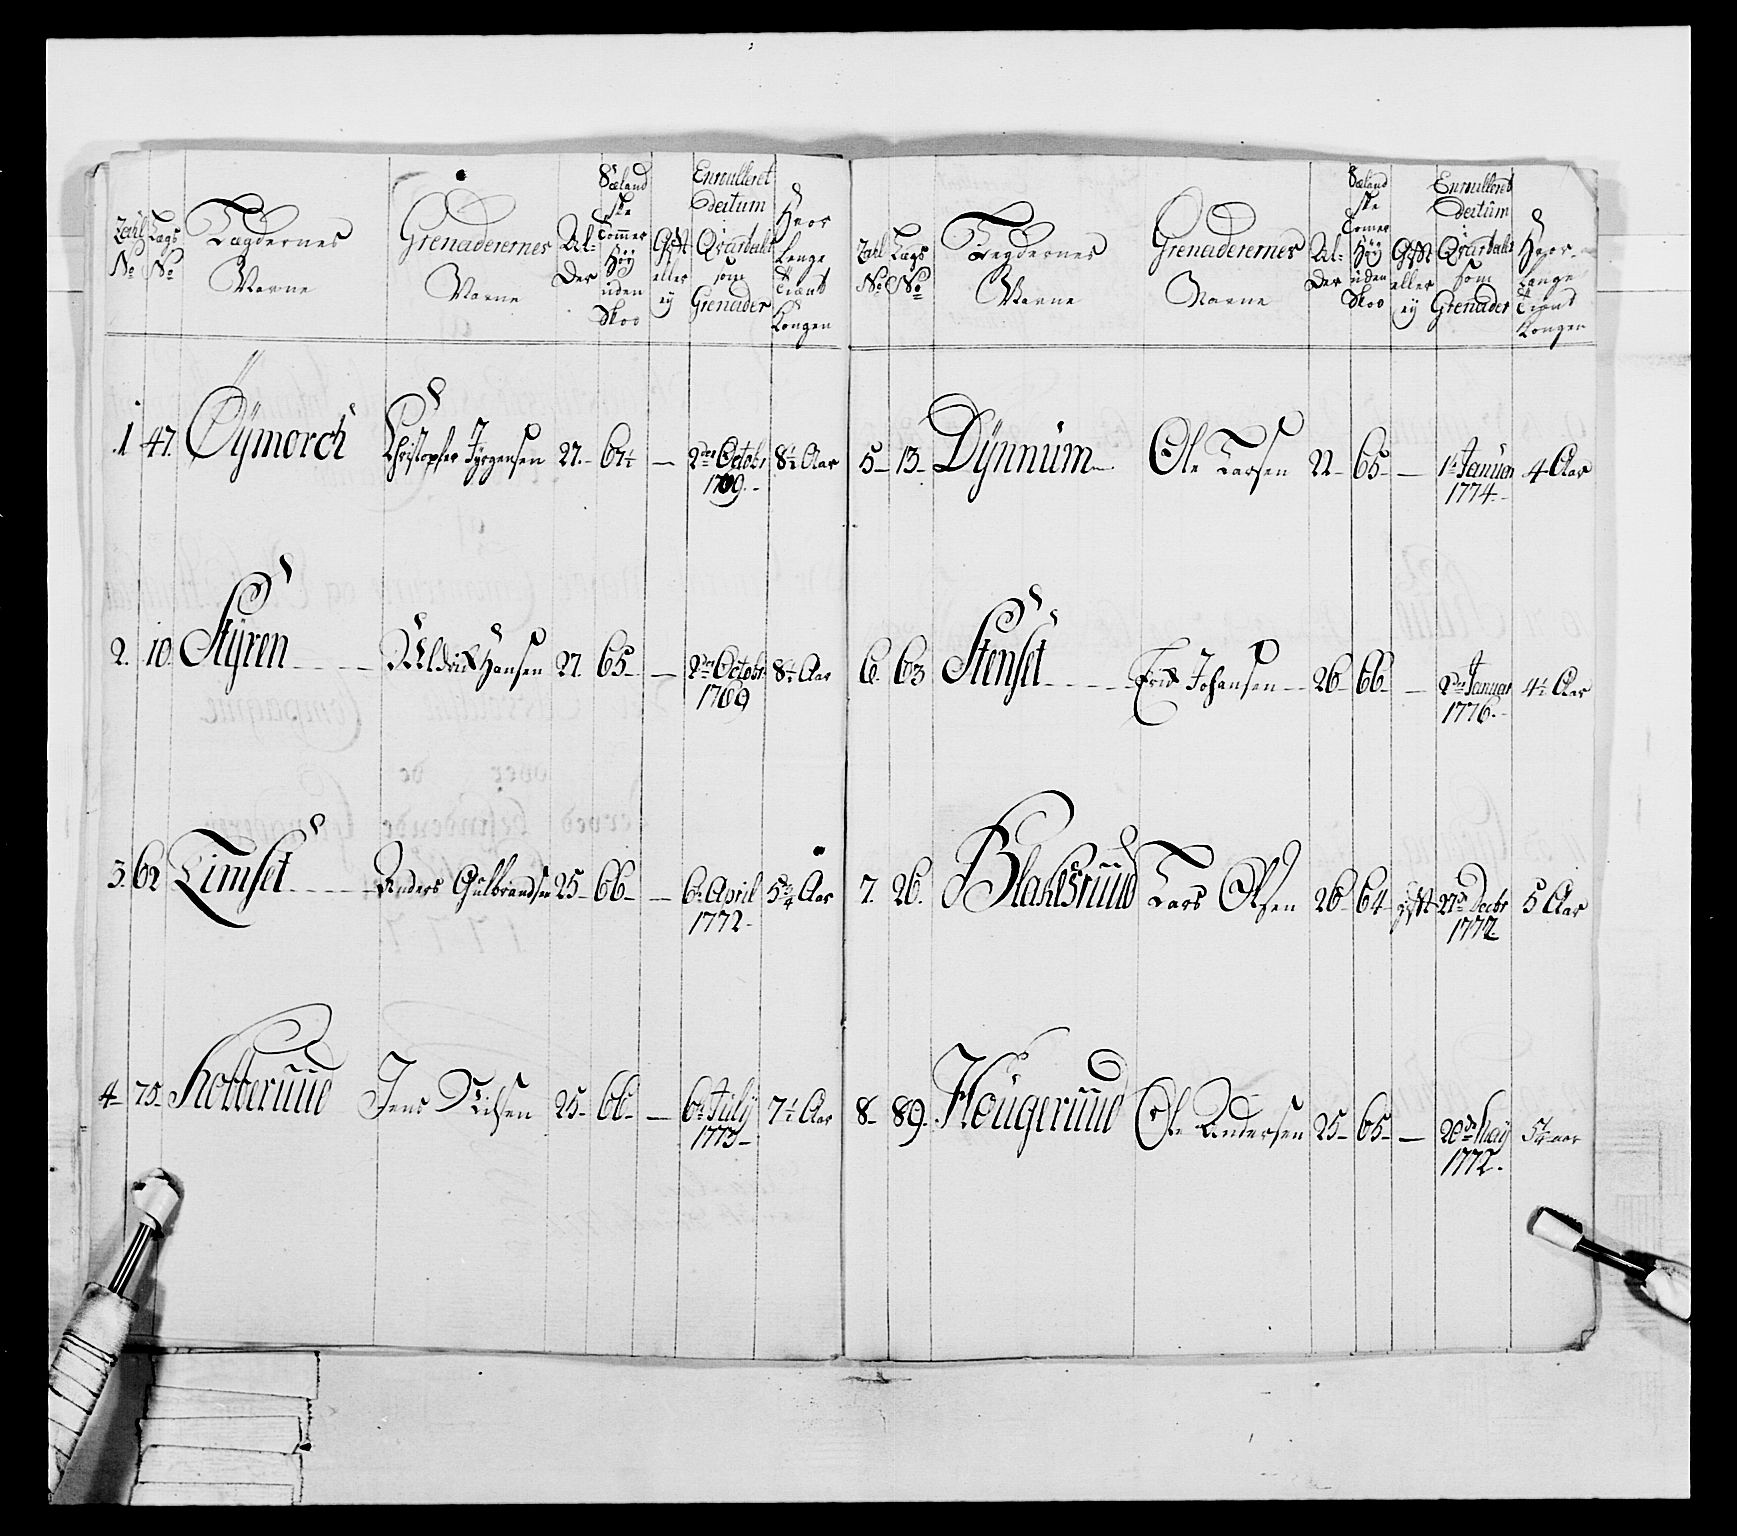 Zahl No
Lægs No
Lægdernes Navne
Grenaderernes Navne
Alder
Sælandske Tommer Høÿ uden Skoe
Gift eller eÿ
Enroulleret Datum i Qvartalet som Grenader
Hvor Længe Tient Kongen
1 47. Öÿmorch Christopher Jørgensen 27. 67½ — 2den Octobr 1769. 8½ Aar
2. 10. Stÿren Uldrich Hansen 27. 65 — 2den Octobr 1769 8½ Aar
3. 62 Limset Anders Gulbrandsen 25 66 — 6te April 1772 5¾ Aar
4 75 Kotterüüd Jens Nilsen 25 66 — 6te Julÿ 1775 7½ Aar
Zahl No
Lægs No
Lægdernes Navne
Grenaderernes Navne
Alder
Sælandske Tomer Høÿ uden Skoe
Gift eller eÿ
Enroulleret Datum i Qvartalet som Grenader
Hvor Længe Tient Kongen
5 13 Dÿnnüm Ole Larsen 22 65 — 1te Januar 1774 4 Aar
6. 63 Stenset Erich Johansen 26 66 — 2den Januar 1776. 4½ Aar
7. 26. Blakesrüüd Lars Olsen 26 64 gift 27de Decbr 1772 5 Aar
8 89. Hougerüüd Ole Andersen 25 65 — 20de Maÿ 1772. 5½ aar